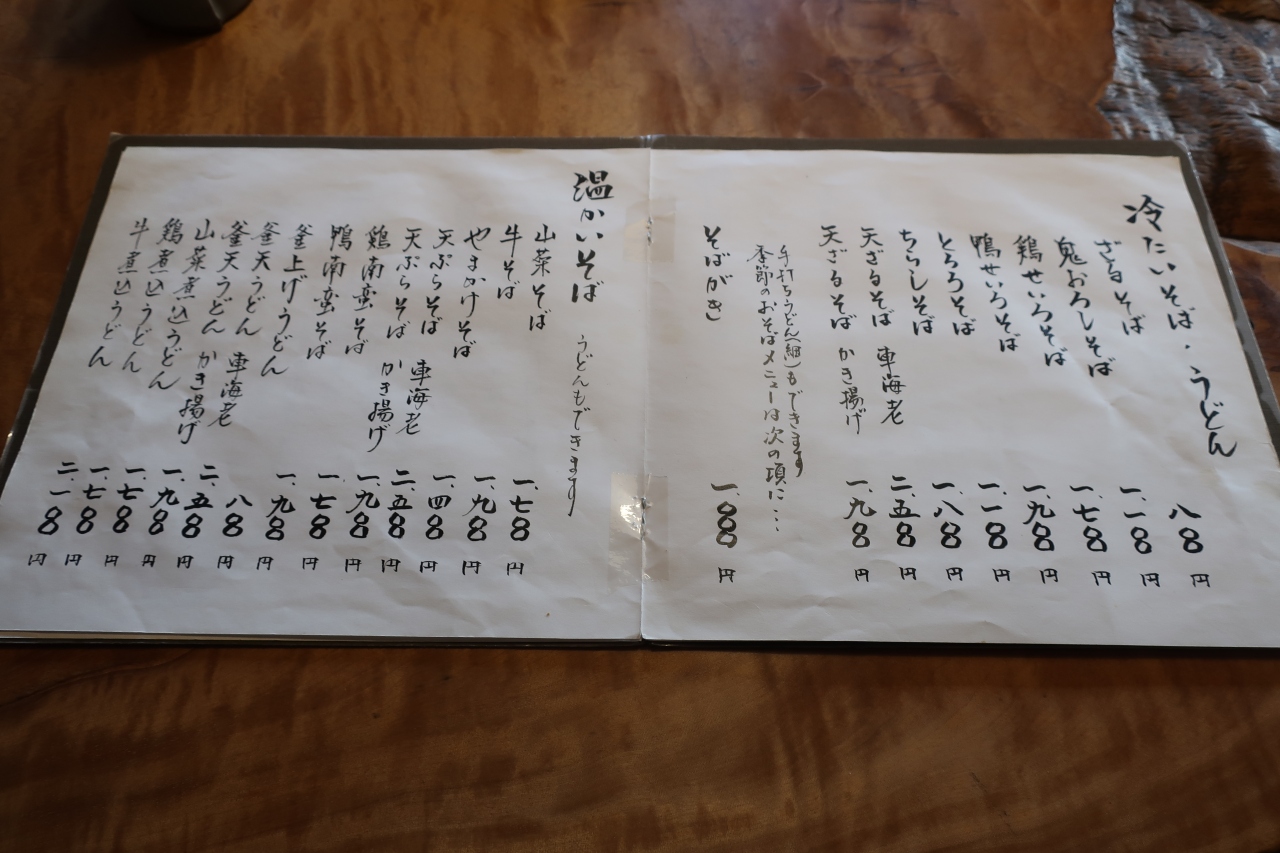 冷たいそば・うどん
ざるそば 八〇〇円
鬼おろしそば 一、一〇〇円
鶏せいろそば 一、七〇〇円
鴨せいろそば 一、九〇〇円
とろろそば 一、一〇〇円
ちらしそば 一、八〇〇円
天ざるそば 車海老 二、五〇〇円
天ざるそば かき揚げ 一、九〇〇円
手打ちうどん(細)もできます
季節のおそばメニューは次の頃に…
そばがき 一、〇〇〇円
温かいそば うどんもできます
山菜そば 一、七〇〇円
牛そば 一、九〇〇円
やまかけそば 一、四〇〇円
天ぷらそば 車海老 二、五〇〇円
天ぷらそば かき揚げ 一、九〇〇円
鶏南蛮そば 一、七〇〇円
鴨南蛮そば 一、九〇〇円
釜上げうどん 八〇〇円
釜天うどん 車海老 二、五〇〇円
釜天うどん かき揚げ 一、九〇〇円
山菜煮込うどん 一、七〇〇円
鶏煮込うどん 一、七〇〇円
牛煮込うどん 二、一〇〇円